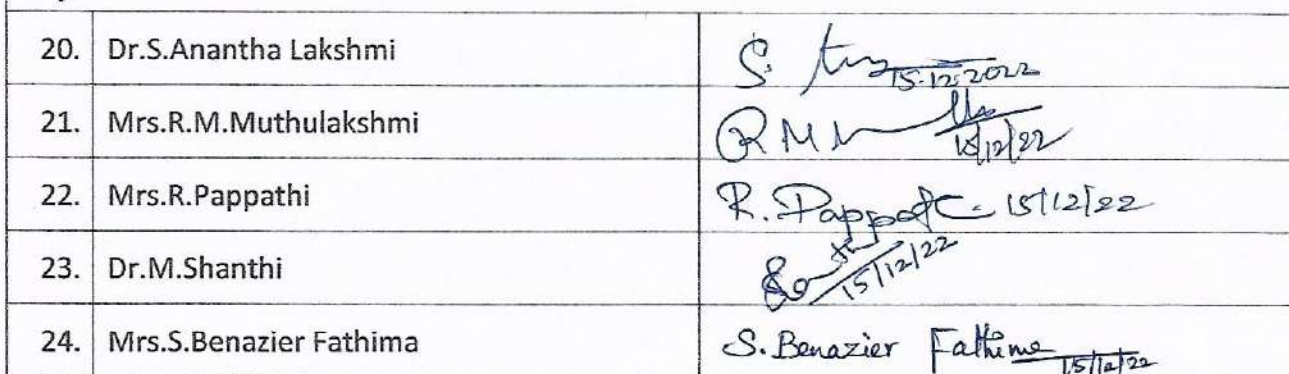 20. Dr.S.Anantha Lakshmi S. 15.12.2022
21. Mrs.R.M.Muthulakshmi R M 15/12/22
22. Mrs.R.Pappathi R. Pappat 15/12/22
23. Dr.M.Shanthi 15/12/22
24. Mrs.S.Benazier Fathima S. Benazier Fathima 15/12/22